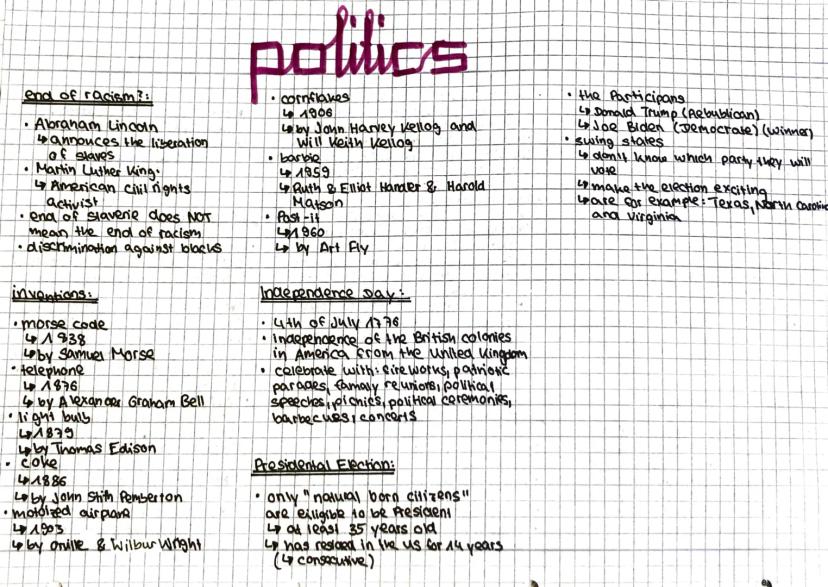 politics
end of racism?:
• Abraham Lincoln
↳ annouces the liberation
of slaves
• Martin Luther King
↳ American civil rights
activist
• end of slaverie does NOT
mean the end of racism
• discrimination against blacks
inventions:
• morse code
↳ 1838
↳ by Samuel Morse
• telephone
↳ 1876
↳ by Alexander Graham Bell
• light bulb
↳ 1879
↳ by Thomas Edison
• coke
↳ 1886
↳ by John Stith Pemberton
• motoized airplane
↳ 1903
↳ by Orville & Wilbur Wright
• cornflakes
↳ 1906
↳ by John Harvey Kellog and
Will Keith Kellog
• barbie
↳ 1959
↳ Ruth & Elliot Handler & Harold
Matson
• Post-it
↳ 1960
↳ by Art Fly
Independence Day:
• 4th of July 1776
• Independence of the British colonies
in America from the United Kingdom
• celebrate with: fireworks, patriotic
parades, family reunions, political
speeches, picnics, political ceremonies,
barbecues, concerts
Presidental Election:
• only "natural born citizens"
are eilligible to be President
↳ at least 35 years old
↳ has resided in the US for 14 years
(↳ consecutive)
• the Participans
↳ Donald Trump (Rebublican)
↳ Joe Biden (Democrate) (winner)
• swing states
↳ don't know which party they will
vote
↳ make the election exciting
↳ are for example: Texas, North Carolina
and Virginia